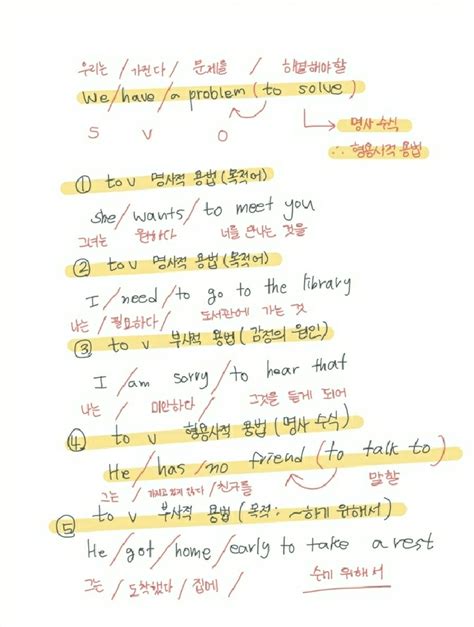 우리는 / 가진다 / 문제를 / 해결해야할
We / have / a problem (to solve)
S V O → 명사 수식
∴ 형용사적 용법
① to v 명사적 용법 (목적어)
she / wants / to meet you
그녀는 원하다 너를 만나는 것을
② to v 명사적 용법 (목적어)
I / need / to go to the library
나는 / 필요하다 / 도서관에 가는 것
③ to v 부사적 용법 (감정의 원인)
I / am sorry / to hear that
나는 / 미안하다 / 그것을 듣게 되어
④ to v 형용사적 용법 (명사 수식)
He / has / no friend (to talk to)
그는 / 가지고 있지 않다 / 친구를 말할
⑤ to v 부사적 용법 (목적 : ~하기 위해서)
He / got / home / early to take a rest
그는 / 도착했다 / 집에 / 쉬기 위해서